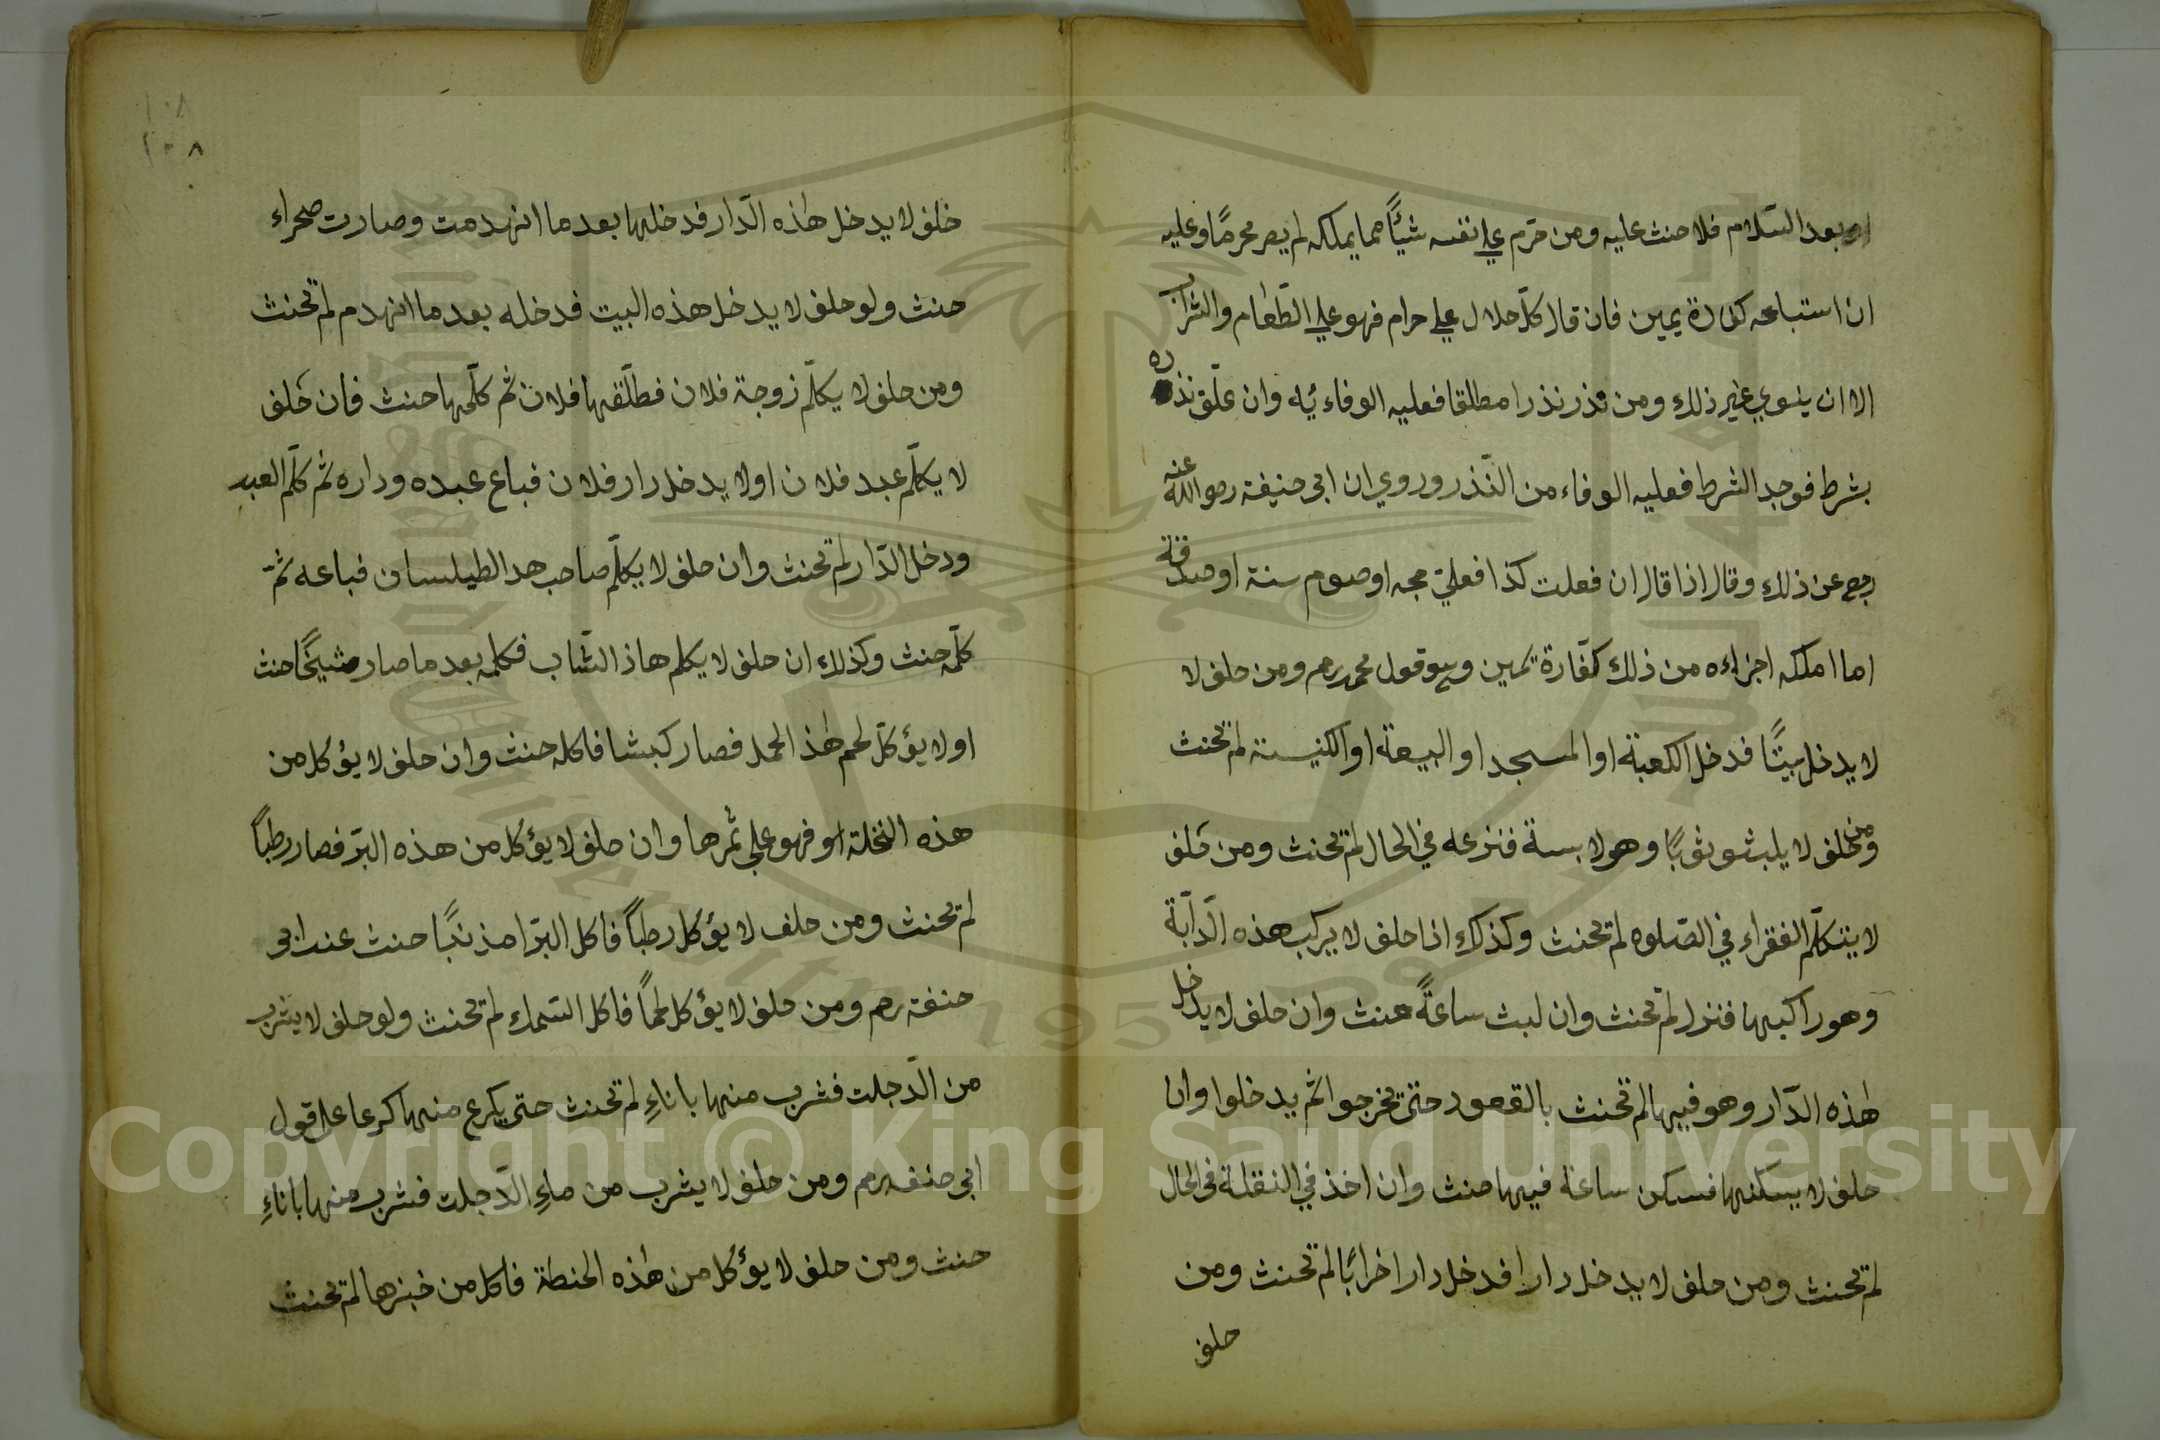 او بعد السّلام فلا حنث عليه ومن حرّم علي نفسه شيئًا مما يملكه لم يصر محرمًا وعليه
ان استباحه كفارة يمين فان قال كلّ حلال علي حرام فهو علي الطّعام والشراب
الا ان ينوي غير ذلك ومن نذر نذرا مطلقا فعليه الوفاء به وان علّق نذره
بشرط فوجد الشرط فعليه الوفاء من النّذر وروي ان ابى حنيفة رضي الله عنه
رجع عن ذلك وقال اذا قال ان فعلت كذا فعليّ حجه او صوم سنة او صدقة
اما املكه اجزاءه من ذلك كفّارة يمين وهو قول محمد رحم ومن حلف لا
لا يدخل بيتًا فدخل الكعبة او المسجد او البيعة او الكنيسة لم تحنث
ومن حلف لا يلبث ثوبًا وهو لابسة فنزعه في الحال لم تحنث ومن حَلف
لا يتكلّم الفقراء في الصّلوه لم تحنث وكذلك اذا حلف لا يركب هذه الدّابّة
وهو راكبها فنزل لم تحنث وان لبث ساعةً حنث وان حلف لا يدخل
هٰذه الدّار وهو فيها لم تحنث بالقعود حتى تخرجوا ثم يدخلوا وان
حلف لا يسكنها فسكن ساعة فيها حنث وان اخذ في النقلة في الحال
لم تحنث ومن حلف لا يدخل دارا فدخل دارا خرابًا لم تحنث ومن
حلف
١٠٨
٢٠٨
حلف لا يدخل هٰذه الدّار فدخلها بعد ما انهدمت وصارت صحراء
حنث ولو حلف لا يدخل هذه البيت فدخله بعد ما انهدم لم تحنث
ومن حلف لا يكلّم زوجة فلان فطلّقها فلان ثم كلّمها حنث فان حَلف
لا يكلّم عبد فلان او لا يدخل دار فلان فباع عبده وداره ثم كلّم العبد
ودخل الدّار لم تحنث وان حلف لا يكلّم صاحب هد الطيلسان فباعه ثمّ
كلّمه حنث وكذلك ان حلف لا يكلم هاذ الشّاب فكلمه بعد ما صار شيخًا حنث
او لا يؤكلّ لحم هٰذ الحمد فصار كبشا فاكله حنث وان حلف لا يؤكل من
هذه النخلة فهو علي ثمرها وان حلف لا يؤكل من هذه البسر فصار رطبًا
لم تحنث ومن حلف لا يؤكل رطبًا فاكل البسرا مذنبًا حنث عند ابى
حنفة رحم ومن حلف لا يؤكل لحمًا فاكل السّمك لم تحنث ولو حلف لا يشرب
من الدّجلت فشرب منها باناءِ لم تحنث حتى يكرع منها كرعا على قول
ابى حنفه رحم ومن حلف لا يشرب من ماءِ الدّجلت فشرب منها باناءِ
حنث ومن حلف لا يؤكل من هٰذه الحنطة فاكل من خبزها لم تحنث
Copyright © King Saud University